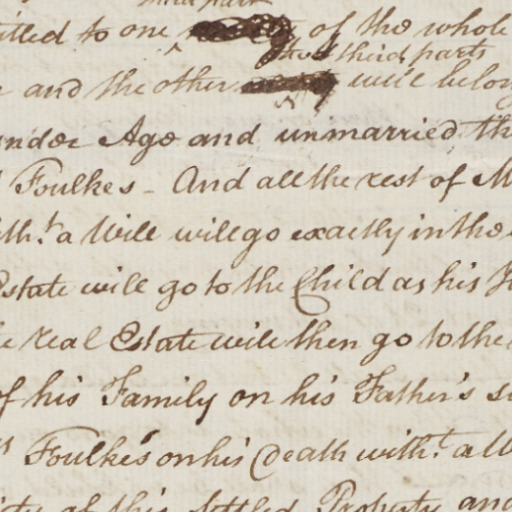 third part
itled to one of the whole
two third parts
and the other will belong
under Age and unmarried th
Foulkes - And all the rest of M
ith.t a Will will go exactly in the
Estate will go to the Child as his H
e real Estate will then go to the
of his Family on his Father's si
Foulkes on his Death with.t a W
of his settled Property and